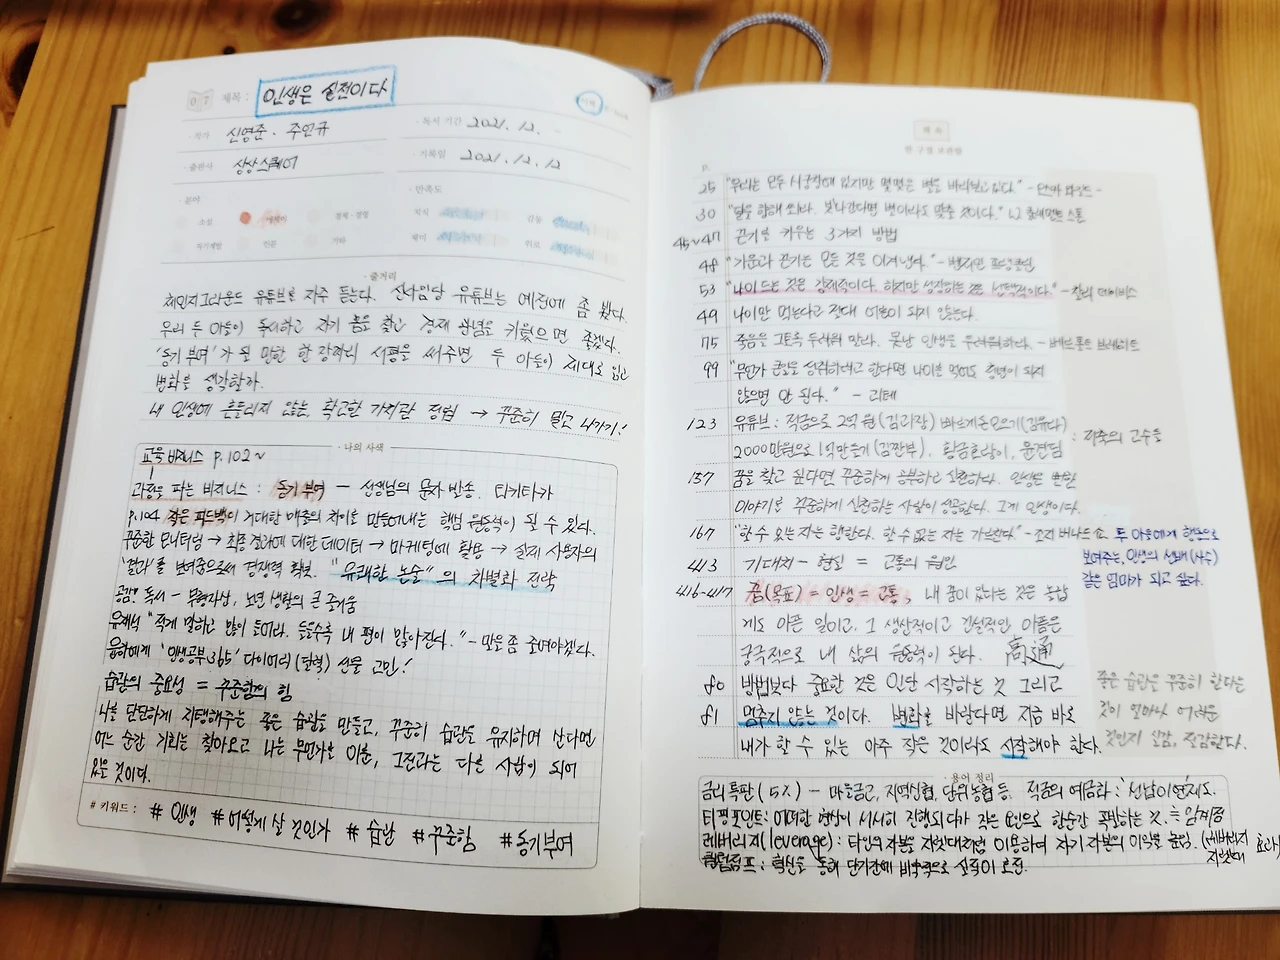 07 제목 : 인생은 실전이다
· 작가 신영준 · 주언규
· 독서 기간 2021. 12. -
· 출판사 상상스퀘어
· 기록일 2021. 12. 12
· 분야
· 만족도
소설 에세이 경제·경영
지식 감동
자기계발 인문 기타
재미 위로
· 줄거리
체인지그라운드 유튜브를 자주 듣는다. 신사임당 유튜브는 예전에 좀 봤다.
우리 두 아들이 독서하고 자기 몸을 찾고 경제 관념을 키웠으면 좋겠다.
'동기 부여'가 될 만한 한 장짜리 서평을 써주면 두 아들이 제대로 읽고
변화를 생각할까.
내 인생에 흔들리지 않는, 확고한 가치관 정립 → 꾸준히 밀고 나가기!
· 나의 사색
교육 비즈니스 p.102~
과정을 파는 비즈니스 : 동기 부여 — 선생님의 문자 발송. 티키타카
p.104 작은 피드백이 거대한 매출의 차이를 만들어내는 핵심 원동력이 될 수 있다.
꾸준한 모니터링 → 최종 결과에 대한 데이터 → 마케팅에 활용 → 실제 사용자의
'결과'를 보여줌으로써 경쟁력 확보. "유쾌한 논술"의 차별화 전략
공감! 독서 — 무형자산, 노년 생활의 큰 즐거움
유재석 "적게 말하고 많이 들어라. 들을수록 내 편이 많아진다." - 말을 좀 줄여야겠다.
윤아에게 '인생공부 365' 다이어리(달력) 선물 고민!
습관의 중요성 = 꾸준함의 힘
나를 단단하게 지탱해주는 좋은 습관을 만들고, 꾸준히 습관을 유지하며 산다면
어느 순간 기회는 찾아오고 나는 무언가를 이룬, 그전과는 다른 사람이 되어
있을 것이다.
# 키워드 : # 인생 # 어떻게 살 것인가 # 습관 # 꾸준함 # 동기부여
책 속
한 구절 보관함
p.
25 "우리는 모두 시궁창에 있지만 몇몇은 별을 바라보고 있다." - 오스카 와일드 -
30 "달을 향해 쏴라. 빗나간다면 별이라도 맞출 것이다." 클레멘트 스톤
45~47 끈기를 키우는 3가지 방법
48 "기운과 끈기는 모든 것을 이겨낸다." - 벤자민 프랭클린
53 "나이 드는 것은 강제적이다. 하지만 성장하는 것은 선택적이다." - 칠리 데이비스
49 나이만 먹는다고 절대 어른이 되지 않는다.
75 죽음은 그토록 두려워 말라. 못난 인생을 두려워하라. - 베르톨트 브레히트
99 "무언가 큰일을 성취하려고 한다면 나이를 먹어도 청년이 되지
않으면 안 된다." - 괴테
123 유튜브 : 적금으로 2억 원 (김리얼) 빠르게 돈 모으기 (김유라)
2000만원으로 1억 만들기 (김짠부). 황금호랑이, 윤건님 : 저축의 고수들
157 꿈을 찾고 싶다면 꾸준하게 공부하고 실천하라. 인생은 뻔한
이야기를 꾸준하게 실천하는 사람이 성공한다. 그게 인생이다.
167 "할 수 있는 자는 행한다. 할 수 없는 자는 가르친다." - 조지 버나드 쇼
두 아들에게 행동으로
보여주는, 인생의 선배(사수)
같은 엄마가 되고 싶다.
413 기대치 - 현실 = 고통의 원인
416-417 꿈(목표) = 인생 = 고통, 내 꿈이 있다는 것은 놀랍
게도 아픈 일이고, 그 생산적이고 건설적인 아픔은
궁극적으로 내 삶의 원동력이 된다. 高通
80 방법보다 중요한 것은 일단 시작하는 것 그리고
81 멈추지 않는 것이다. 변화를 바란다면 지금 바로
내가 할 수 있는 아주 작은 것이라도 시작해야 한다.
좋은 습관을 꾸준히 한다는
것이 얼마나 어려운
것인지 실감, 절감한다.
· 용어 정리
금리 특판 (5%) — 마을금고, 지역신협, 단위농협 등. 적금의 예금화 : '선납이연'제도.
티핑포인트 : 어떠한 현상이 서서히 진행되다가 작은 요인으로 한순간 폭발하는 것. ≒ 임계점
레버리지 (leverage) : 타인의 자본을 지렛대처럼 이용하여 자기 자본의 이익률 높임. (레버리지 효과)
지렛대
퀀텀점프 : 혁신을 통해 단기간에 비약적으로 실적이 호전.